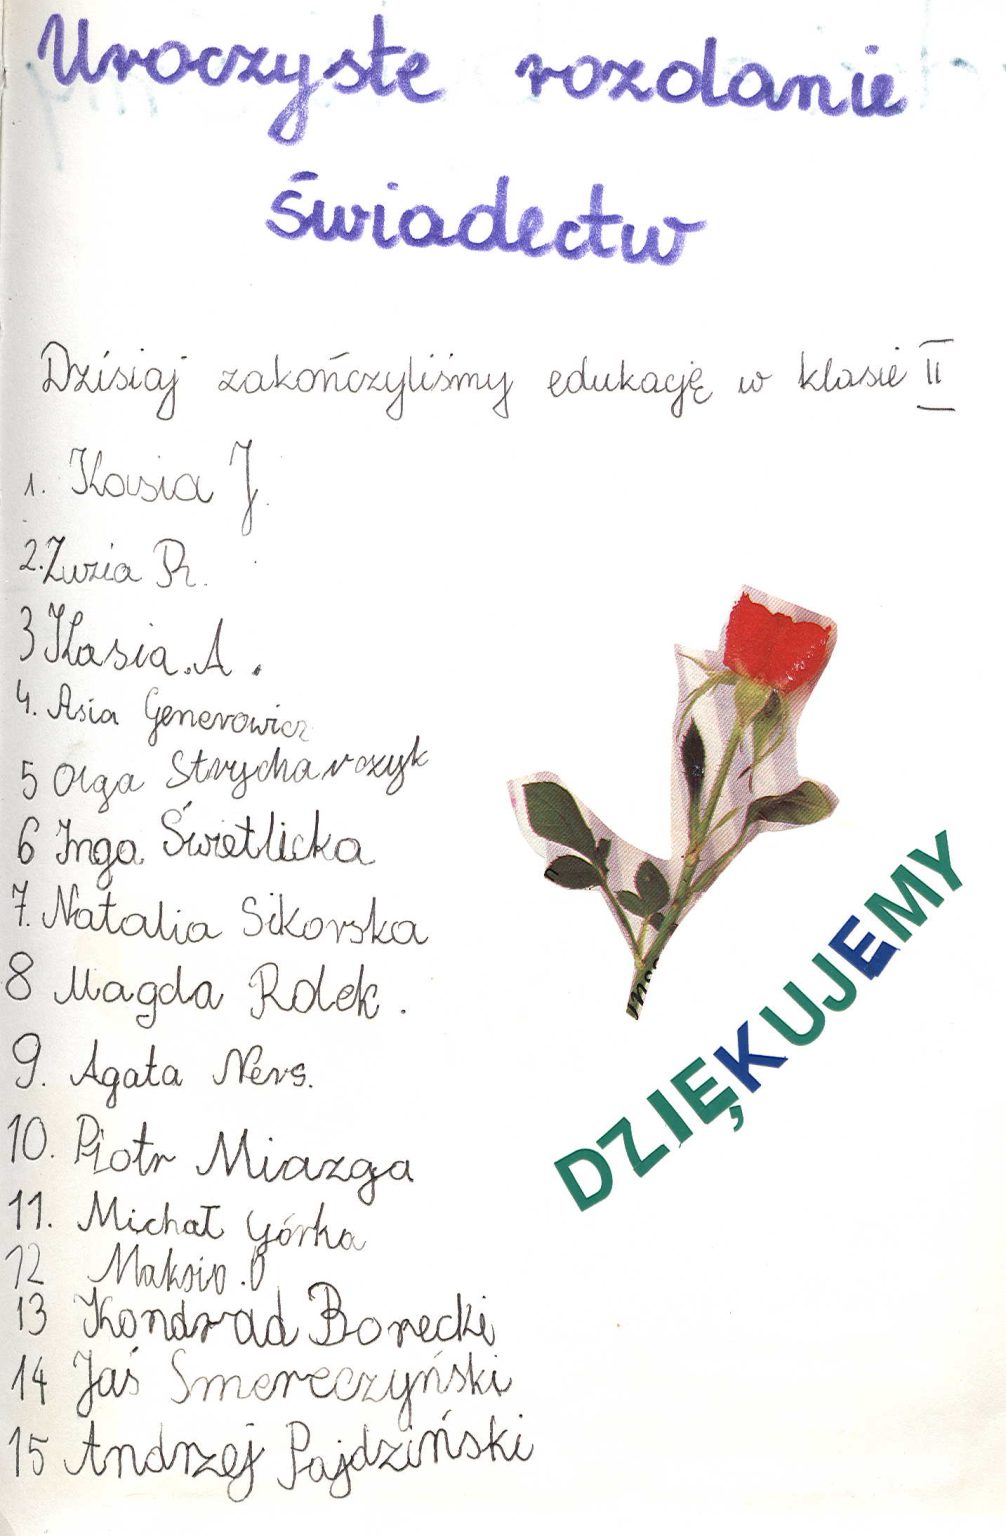 Uroczyste rozdanie
świadectw
Dzisiaj zakończyliśmy edukację w klasie II
1. Kasia J.
2. Zuzia R.
3 Kasia. A.
4. Asia Generowicz
5 Olga Strycharczyk
6 Inga Świetlicka
7. Natalia Sikorska
8 Magda Rolek.
9. Agata Ners.
10. Piotr Miazga
11. Michał Górka
12
13 Kondrad Borecki
14 Jaś Smereczyński
15 Andrzej Pajdziński
DZIĘKUJEMY